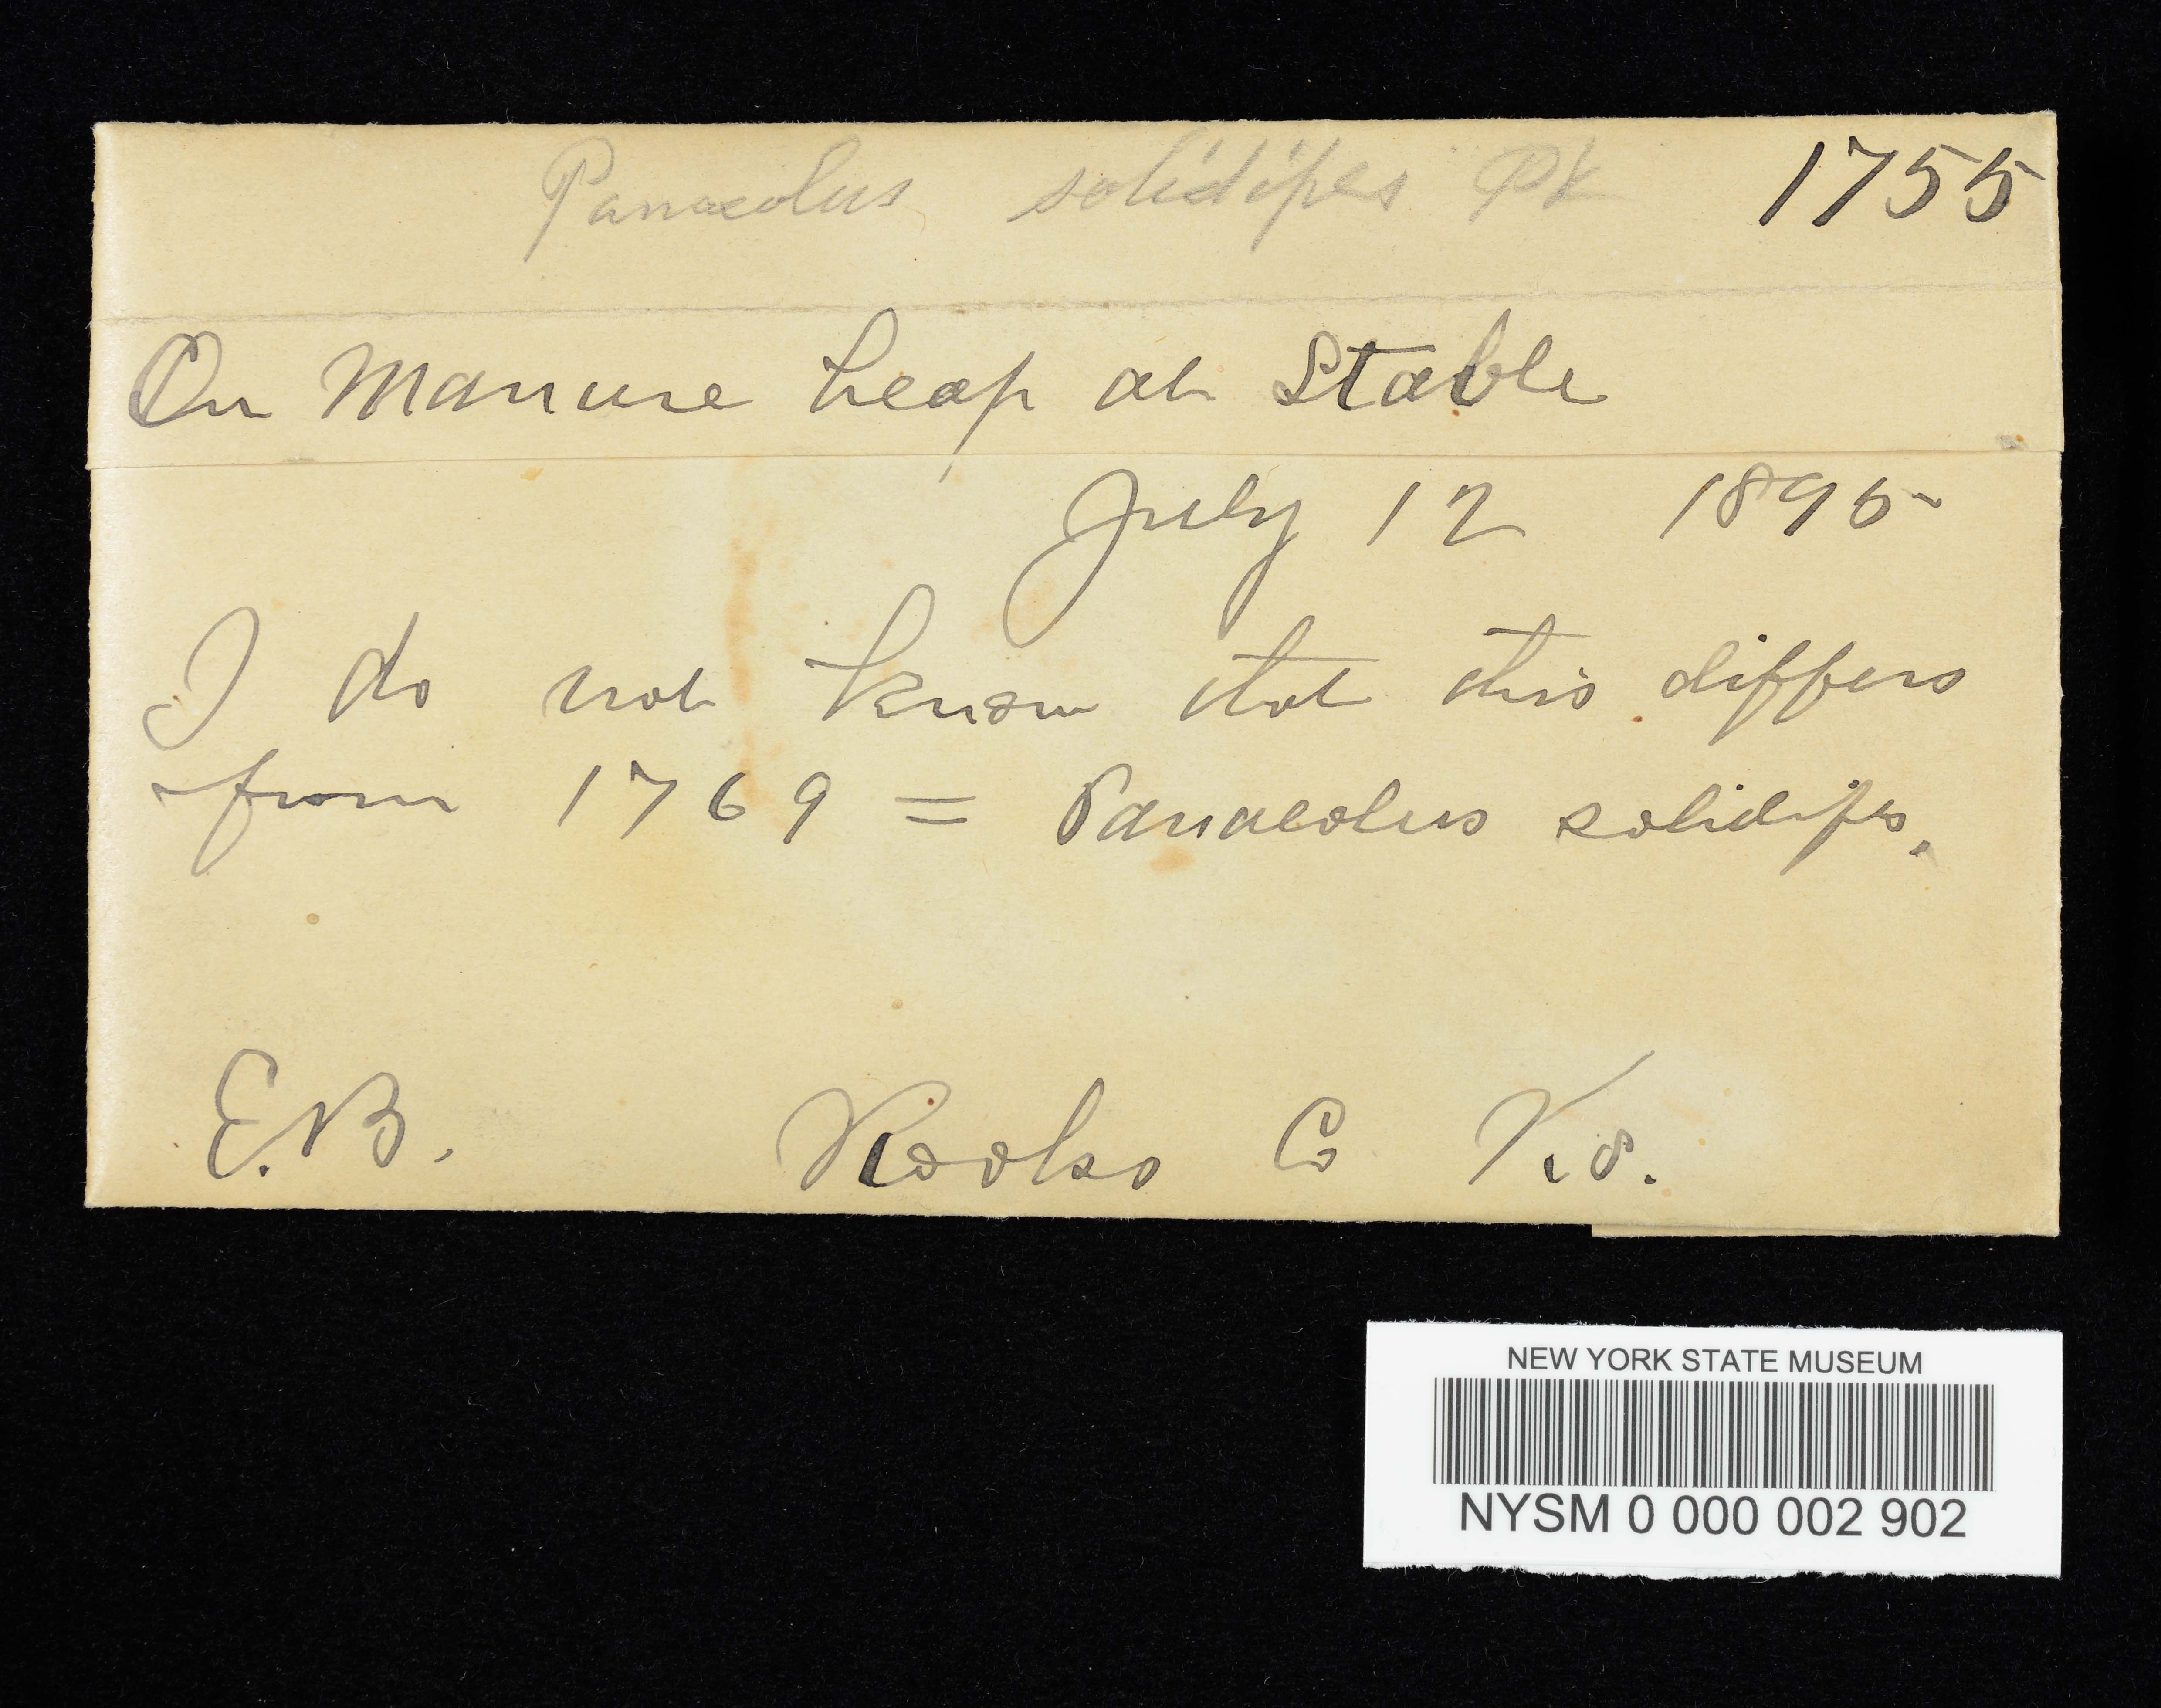 Panaeolus solidipes Pk 1755
On Manure heap at Stable
July 12 1895
I do not know that this differs
from 1769 = Panaeolus solidipes.
E.B. Rooks Co Ks.
NEW YORK STATE MUSEUM
NYSM 0 000 002 902